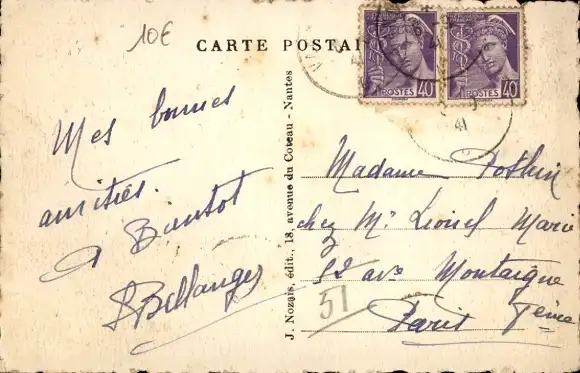 10€
CARTE POSTAL
40 POSTES
POSTES 40
41
Mes bonnes
amitiés.
A Bantot
Bellanger
J. Nozais, édit., 18, avenue du Coteau - Nantes
Madame Pothin
chez Mr Lionel Marie
52 ave Montaigne
51
Paris 8ème